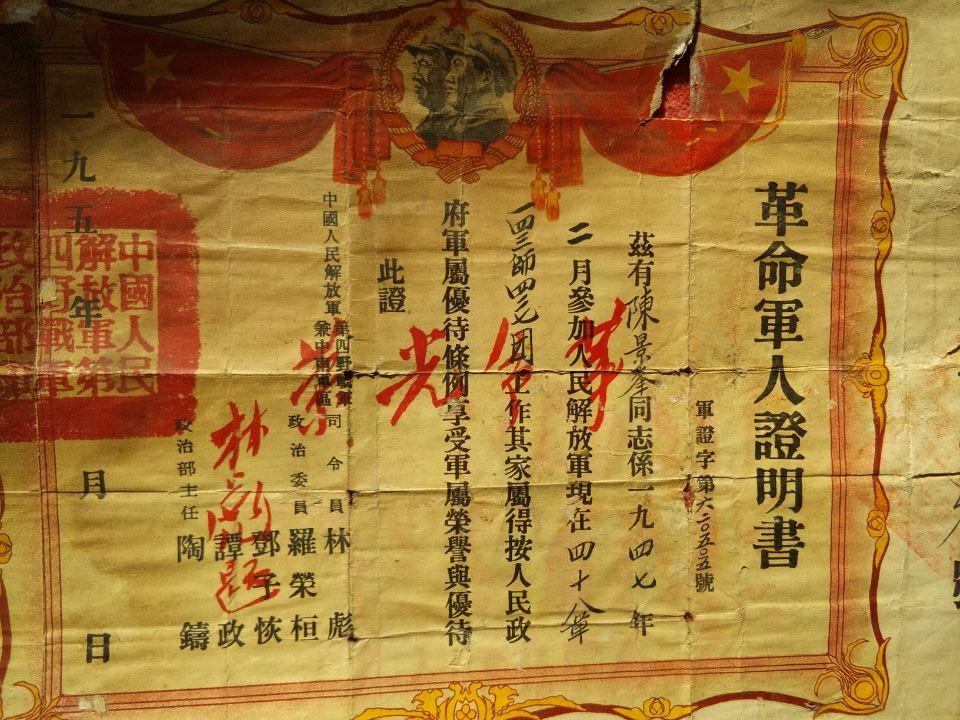 革命軍人證明書
軍證字第六二〇五〇五號
茲有陳景奎同志係一九四七年
二月參加人民解放軍現在四十八軍
一四三師四二七團工作其家屬得按人民政
府軍屬優待條例享受軍屬榮譽與優待
此證
革命光榮
林彪題
中國人民解放軍第四野戰軍兼中南軍區司令員林彪
政治委員羅榮桓
鄧子恢
譚政
政治部主任陶鑄
一九五年月日
中國人民
解放軍第
四野戰軍
政治部